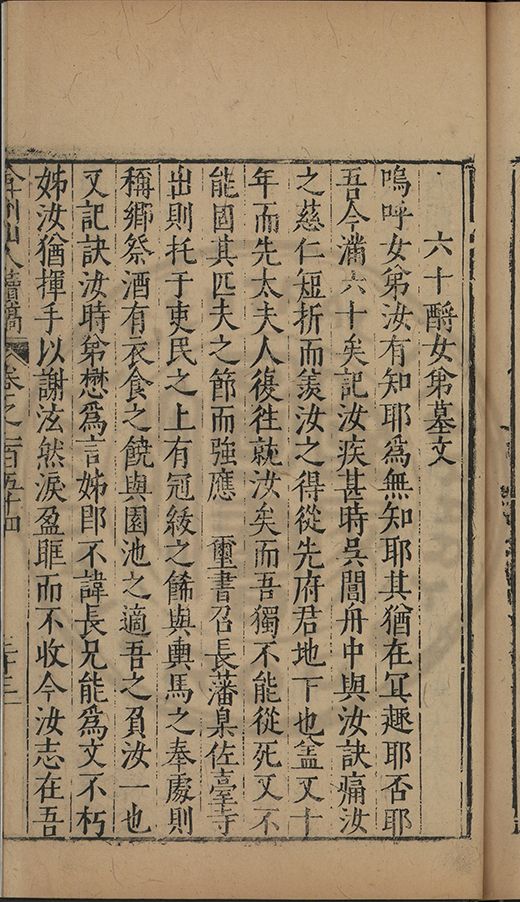 六十酹女弟墓文
嗚呼女弟汝有知耶爲無知耶其猶在冥趣耶否耶
吾今滿六十矣記汝疾甚時吳閶舟中與汝訣痛汝
之慈仁短折而羨汝之得從先府君地下也盖又十
年而先太夫人復徃就汝矣而吾獨不能從死又不
能固其匹夫之節而強應 璽書召長藩臬佐臺寺
出則托于吏民之上有冠綏之餙與輿馬之奉處則
稱鄉祭酒有衣食之饒與園池之適吾之負汝一也
又記訣汝時弟懋爲言姊郎不諱長兄能爲文不朽
姊汝猶揮手以謝泫然淚盈眶而不收今汝志在吾
弇州山人續稿 卷之一百五十四